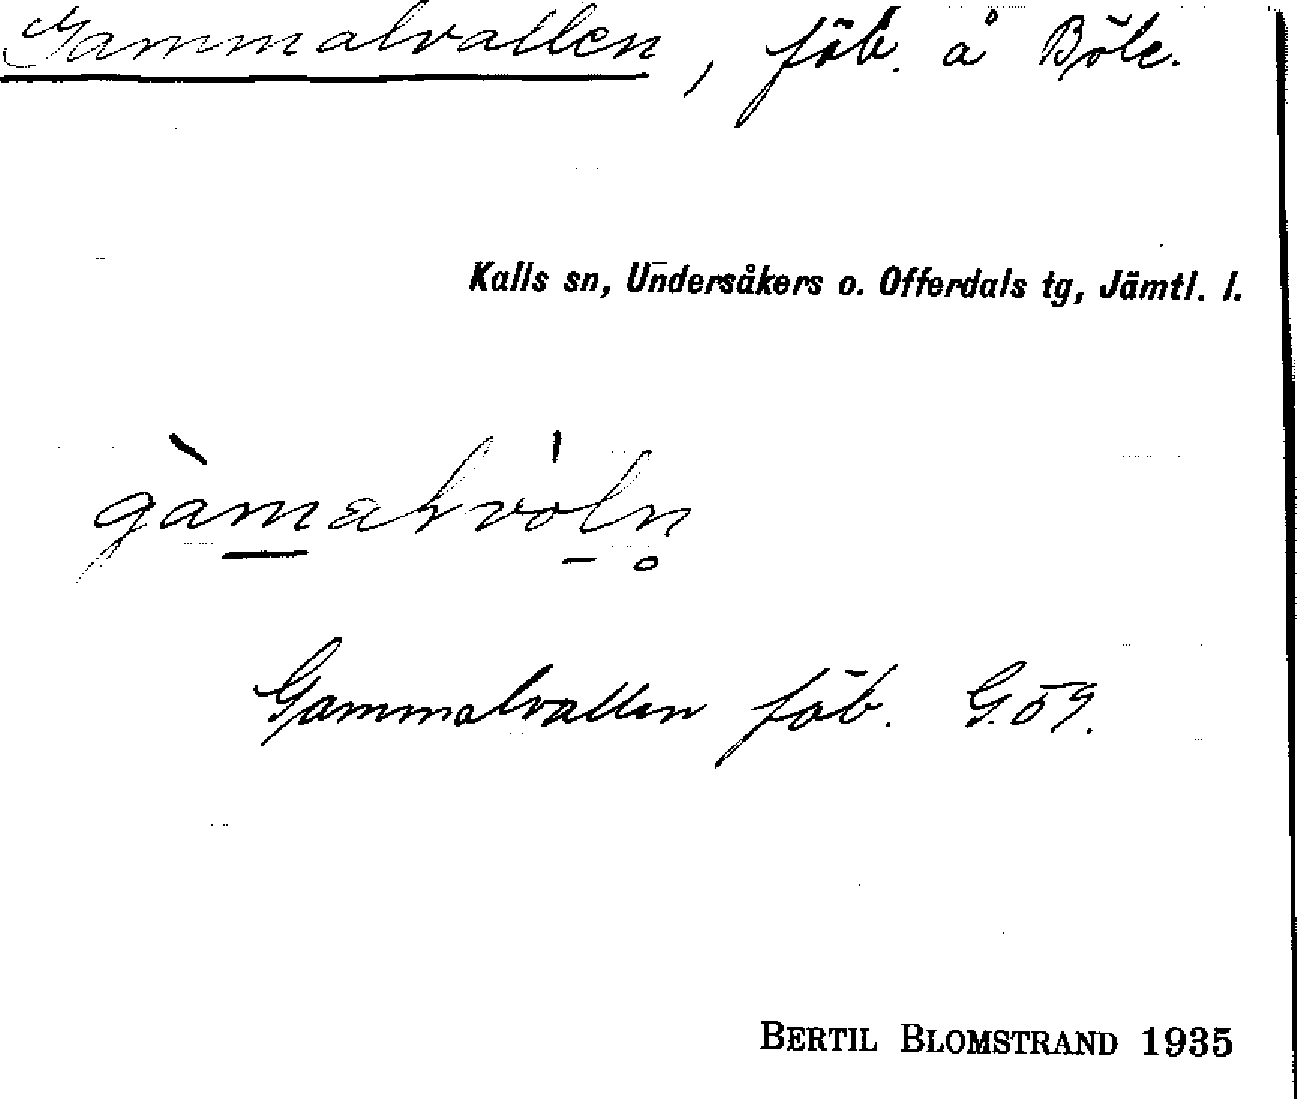 Gammalvallen, fäb. å Böle.
Kalls sn, Undersåkers o. Offerdals tg, Jämtl. l.
Gammalvallen fäb. G.ö9.
BERTIL BLOMSTRAND 1935